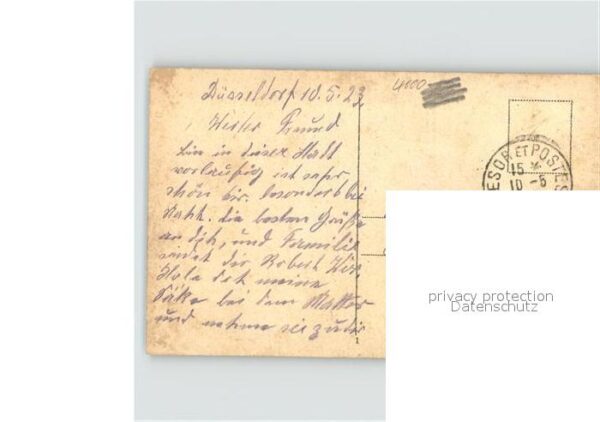 Düsseldorf 10.5.23
4000
Werter Freund
bin in dieser Stadt
vorläufig ist sehr
schön hir. besonders bei
Nacht. die besten Grüße
an dich, und Familie
sendet dir Robert
Hole dort meine
Säke bei dem
und nehme sie zu dir
TRESOR ET POSTES
15 *
10 - 5
privacy protection
Datenschutz